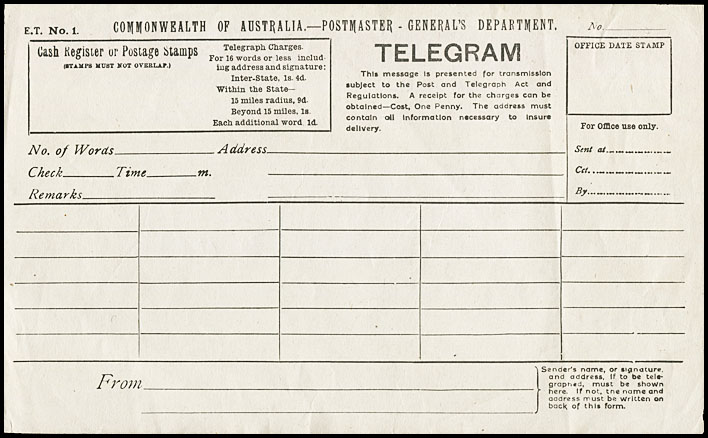 E.T. No. 1. COMMONWEALTH OF AUSTRALIA.—POSTMASTER - GENERAL'S DEPARTMENT. No.
Cash Register or Postage Stamps
(STAMPS MUST NOT OVERLAP.)
Telegraph Charges.
For 16 words or less includ-
ing address and signature:
Inter-State, 1s. 4d.
Within the State—
15 miles radius, 9d.
Beyond 15 miles, 1s.
Each additional word 1d.
TELEGRAM
This message is presented for transmission
subject to the Post and Telegraph Act and
Regulations. A receipt for the charges can be
obtained—Cost, One Penny. The address must
contain all information necessary to insure
delivery.
OFFICE DATE STAMP
For Office use only.
No. of Words Address
Check Time m.
Remarks
Sent at
Cct.
By
From
Sender's name, or signature,
and address, if to be tele-
graphed, must be shown
here. If not, the name and
address must be written on
back of this form.